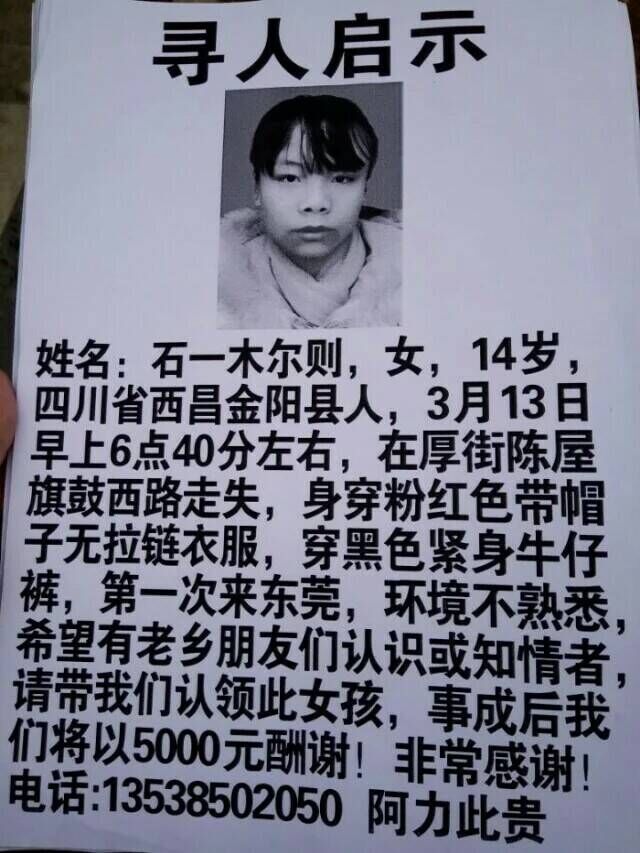 寻人启示
姓名：石一木尔则，女，14岁，
四川省西昌金阳县人，3月13日
早上6点40分左右，在厚街陈屋
旗鼓西路走失，身穿粉红色带帽
子无拉链衣服，穿黑色紧身牛仔
裤，第一次来东莞，环境不熟悉，
希望有老乡朋友们认识或知情者，
请带我们认领此女孩，事成后我
们将以5000元酬谢！非常感谢！
电话:13538502050 阿力此贵